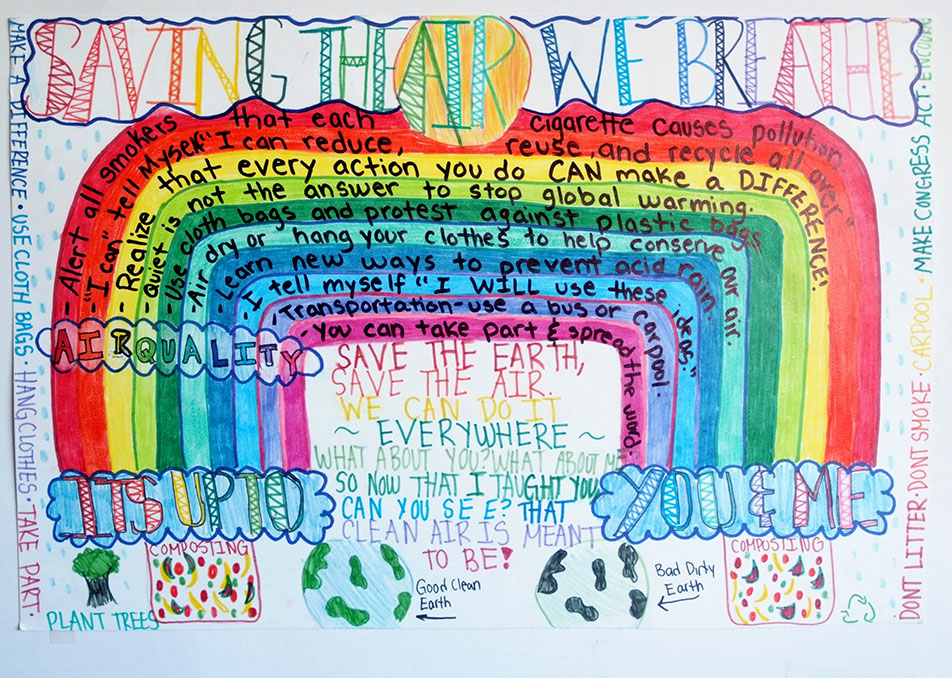 SAVING THE AIR WE BREATHE
MAKE A DIFFERENCE · USE CLOTH BAGS · HANG CLOTHES · TAKE PART ·
- Alert all smokers that each cigarette causes pollution.
- "I can" tell Myself "I can reduce, reuse, and recycle all over"
- Realize that every action you do CAN make a DIFFERENCE!
- Quiet is not the answer to stop global warming.
- Use cloth bags and protest against plastic bags
- Air dry or hang your clothes to help conserve our air.
- Learn new ways to prevent acid rain.
- I tell myself "I WILL use these ideas."
Transportation-use a bus or carpool.
- You can take part & spread the word.
AIR QUALITY
SAVE THE EARTH,
SAVE THE AIR.
WE CAN DO IT
~ EVERYWHERE ~
WHAT ABOUT YOU? WHAT ABOUT ME
SO NOW THAT I TAUGHT YOU
CAN YOU SEE? THAT
CLEAN AIR IS MEANT
TO BE!
ITS UP TO
YOU & ME
PLANT TREES
COMPOSTING
Good Clean
Earth
Bad Dirty
Earth
COMPOSTING
DONT LITTER · DONT SMOKE · CARPOOL · MAKE CONGRESS ACT ·